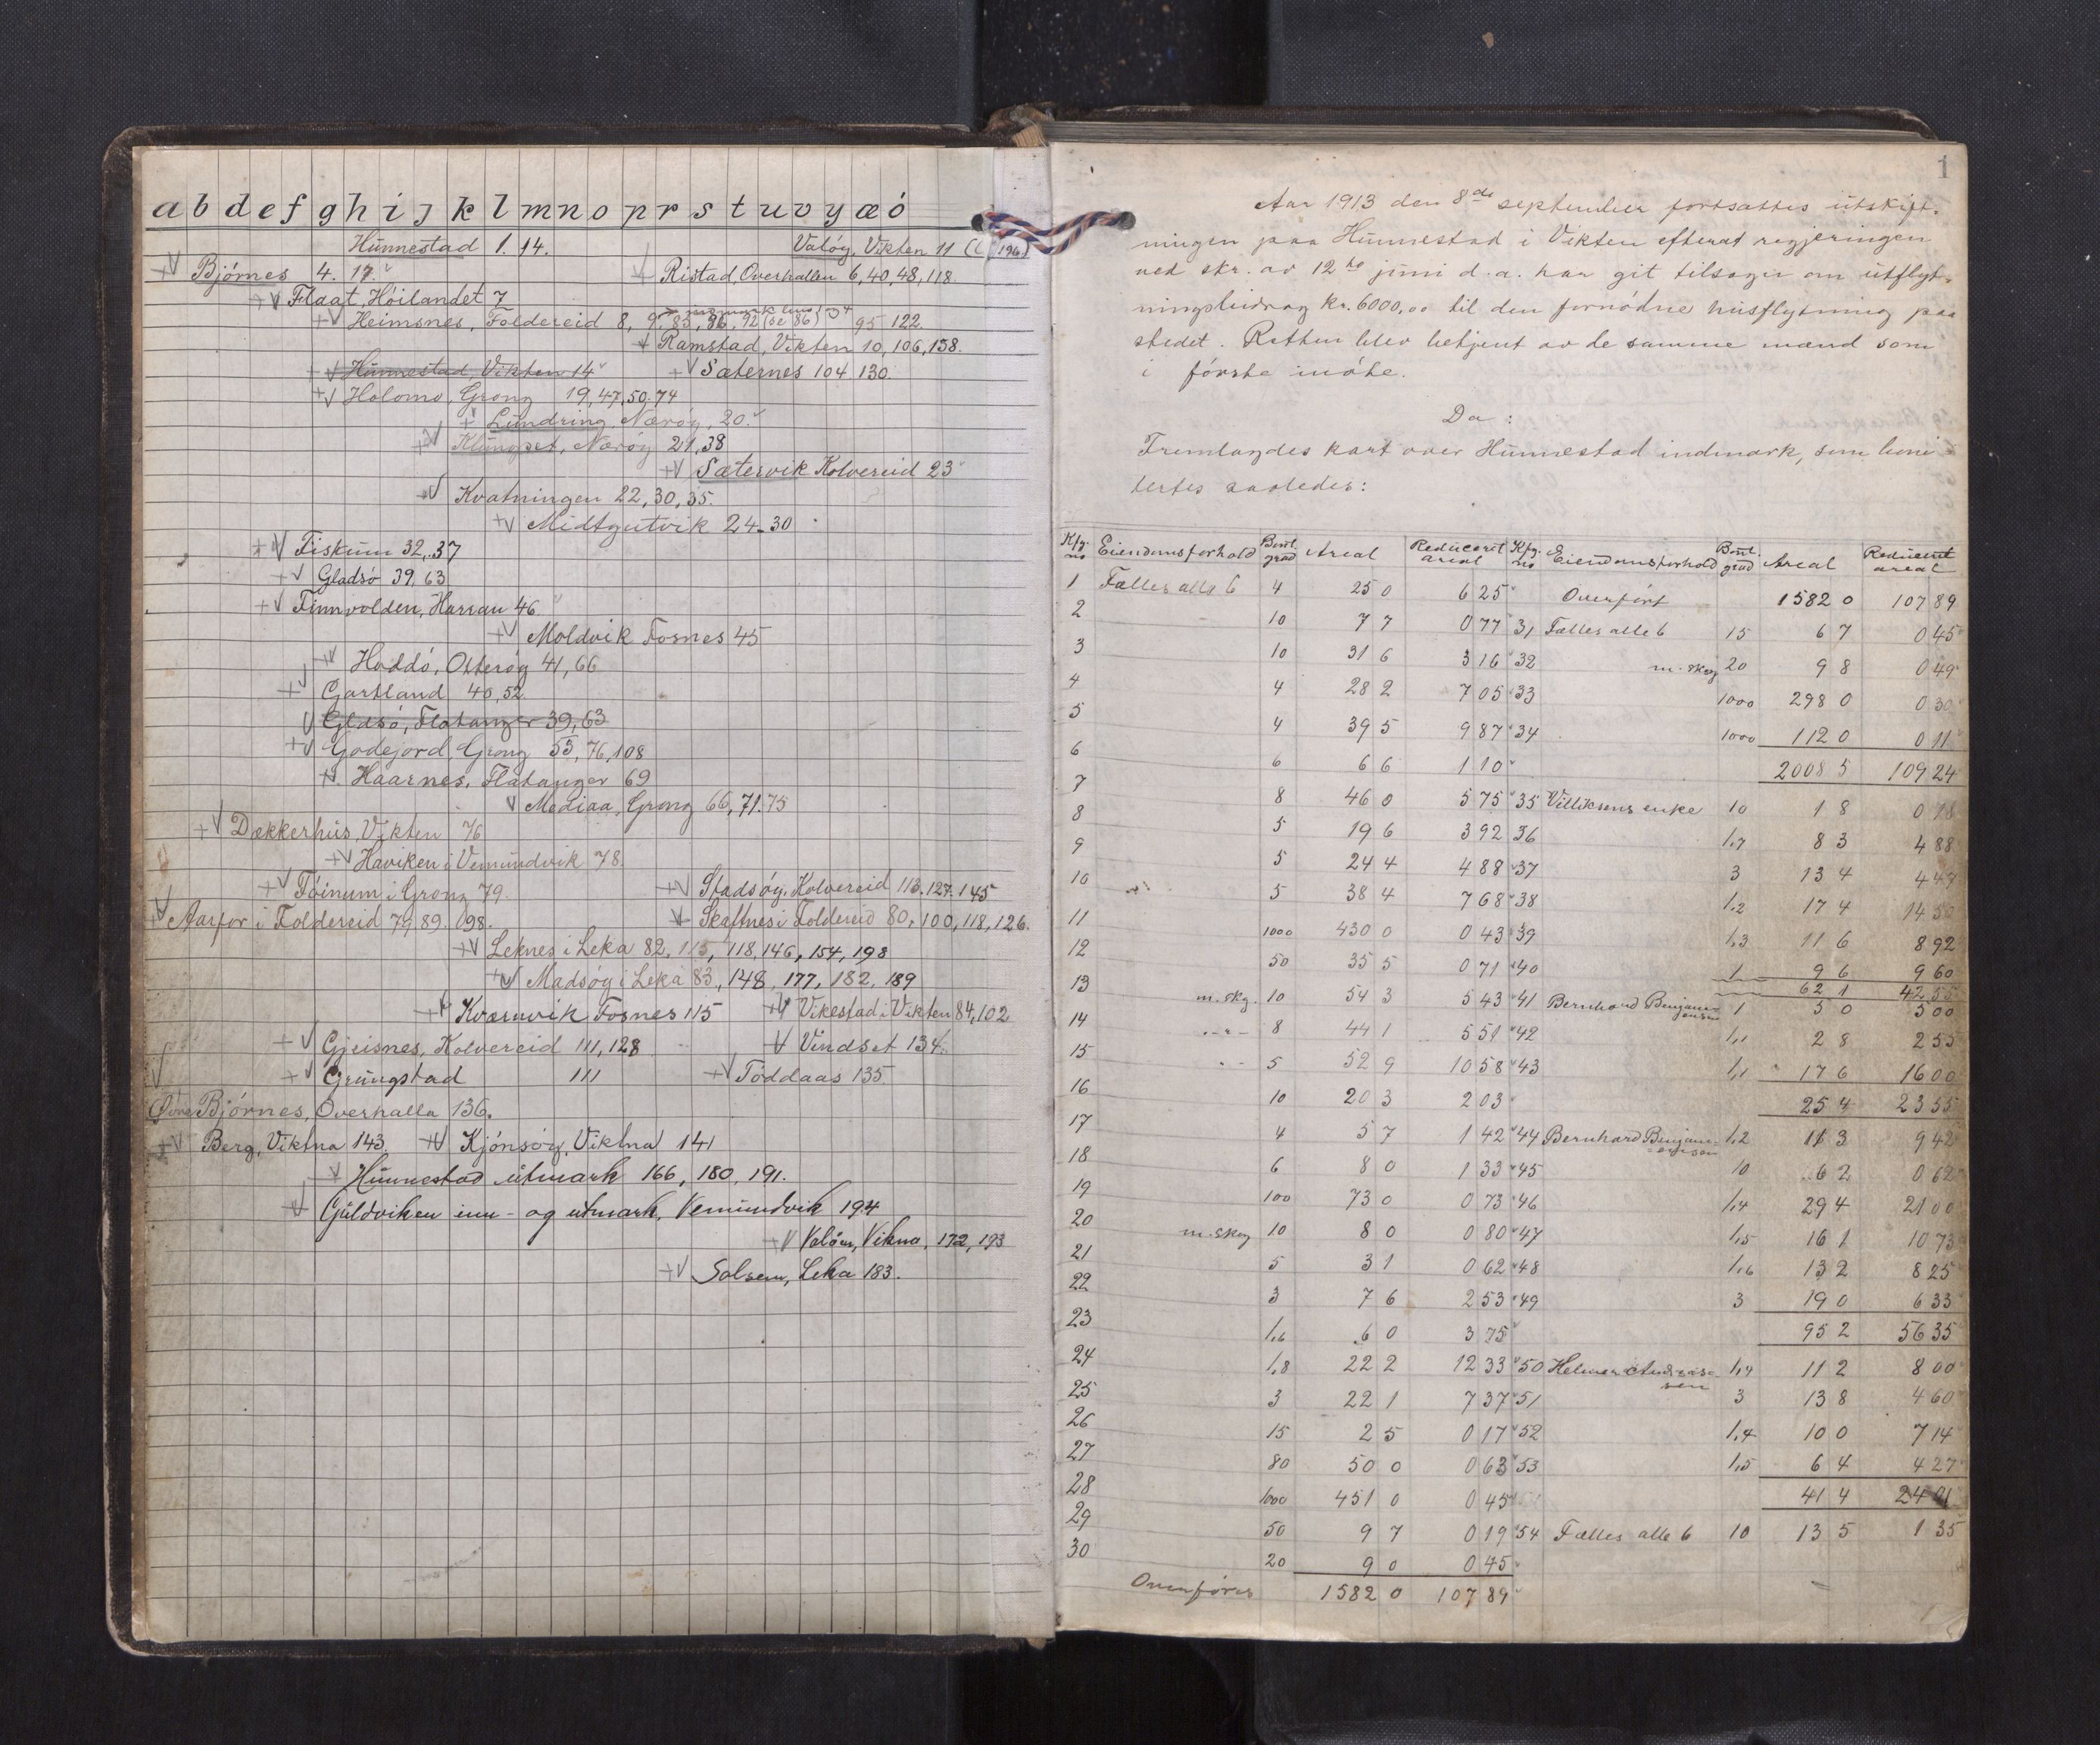 a b d e f g h i j k l m n o p r s t u v y æ ó
Hünnestad 1. 14.
Valöy, Vikten 11 (196)
Bjórnes 4. 17.
Ristad, Overhallen 6, 40, 48, 118.
Flaat, Höilandet 7
Heimsnes, Foldereid 8, 9, 83, 86, 92 (se 86) 95 122.
Ramstad, Vikten 10, 106, 138.
Hünnestad, Vikten 14
Sæternes 104 130.
Holomo, Grong 19, 47, 50. 74
Lündring Nærøy, 20.
Klüngset, Nærøy 21, 38
Sætervik Kolvereid 23
Kvatningen 22, 30, 35.
Midtgutvik 24-30
Fiskum 32, 37
Gladsö 39, 63
Finnvolden, Harran 46
Moldvik Fosnes 45
Hoddó, Otteróy 41, 66
Gartland 40, 52
Gladsó, Flatanger 39, 63
Godejord, Grong 55, 76, 108
Haarnes, Flatanger 69
Mediaa, Grong 66, 71. 75
Dækkerhüs, Vikten 76
Haviken i Vemündvik 78.
Töinum i Grong 79.
Stadsöy, Kolvereid 113. 127. 145
Aarfor i Foldereid 79, 89. 098.
Skaftnes i Foldereid 80, 100, 118, 126.
Leknes i Leka 82, 115, 118, 146, 154, 198
Madsöy i Leka 83, 148, 177, 182, 189
Kvarnvik Fosnes 115
Vikestad i Vikten 84, 102
Gjeisnes, Kolvereid 111, 128
Vindset 134.
Grüngstad 111
Töddaas 135.
Øvre Bjórnes, Overhalla 136.
Berg, Viktna 143.
Kjónsóy, Viktna 141
Hünnestad utmark 166, 180, 191.
Güldviken inn- og utmark, Vemündvik 194
Valöen, Vikna, 172, 193
Solsem, Leka 183.
1
Aar 1913 den 8de september fortsattes utskift-
ningen paa Hünnestad i Vikten efterat regjeringen
ved skr. av 12te jüni d.a. har git tilsagn om ütflyt-
ningsbidrag kr. 6000,00 til den fornödne hüsflytning paa
stedet. Retten blev betjent av de samme mænd som
i förste möte.
Da:
Fremlagdes kart over Hünnestad indmark, som boni-
tertes saaledes:
Kfg. no Eiendomsforhold Bonit. grad Areal Reduceret areal Kfg. no Eiendomsforhold Bonit. grad Areal Reduceret areal
1 Fælles alle 6 4 25 0 6 25 Overfört 1582 0 107 89
2 10 7 7 0 77 31 Fælles alle 6 15 6 7 0 45
3 10 31 6 3 16 32 m. skog 20 9 8 0 49
4 4 28 2 7 05 33 1000 298 0 0 30
5 4 39 5 9 87 34 1000 112 0 0 11
6 6 6 6 1 10 2008 5 109 24
7 8 46 0 5 75 35 Villiksens enke 10 1 8 0 18
8 5 19 6 3 92 36 1,7 8 3 4 88
9 5 24 4 4 88 37 3 13 4 4 47
10 5 38 4 7 68 38 1,2 17 4 14 50
11 1000 430 0 0 43 39 1,3 11 6 8 92
12 50 35 5 0 71 40 1 9 6 9 60
62 1 42 55
13 m. skg. 10 54 3 5 43 41 Bernhard Benjaminsen 1 5 0 5 00
14 -"- 8 44 1 5 51 42 1,1 2 8 2 55
15 - - 5 52 9 10 58 43 1,1 17 6 16 00
16 10 20 3 2 03 25 4 23 55
17 4 5 7 1 42 44 Bernhard Benjaminsen 1,2 11 3 9 42
18 6 8 0 1 33 45 10 6 2 0 62
19 100 73 0 0 73 46 1,4 29 4 21 00
20 m. skog 10 8 0 0 80 47 1,5 16 1 10 73
21 5 3 1 0 62 48 1,6 13 2 8 25
22 3 7 6 2 53 49 3 19 0 6 33
23 1,6 6 0 3 75 95 2 56 35
24 1,8 22 2 12 33 50 Helmer Andreassen 1,4 11 2 8 00
25 3 22 1 7 37 51 3 13 8 4 60
26 15 2 5 0 17 52 1,4 10 0 7 14
27 80 50 0 0 63 53 1,5 6 4 4 27
28 1000 451 0 0 45 41 4 24 01
29 50 9 7 0 19 54 Fælles alle 6 10 13 5 1 35
30 20 9 0 0 45
Overföres 1582 0 107 89